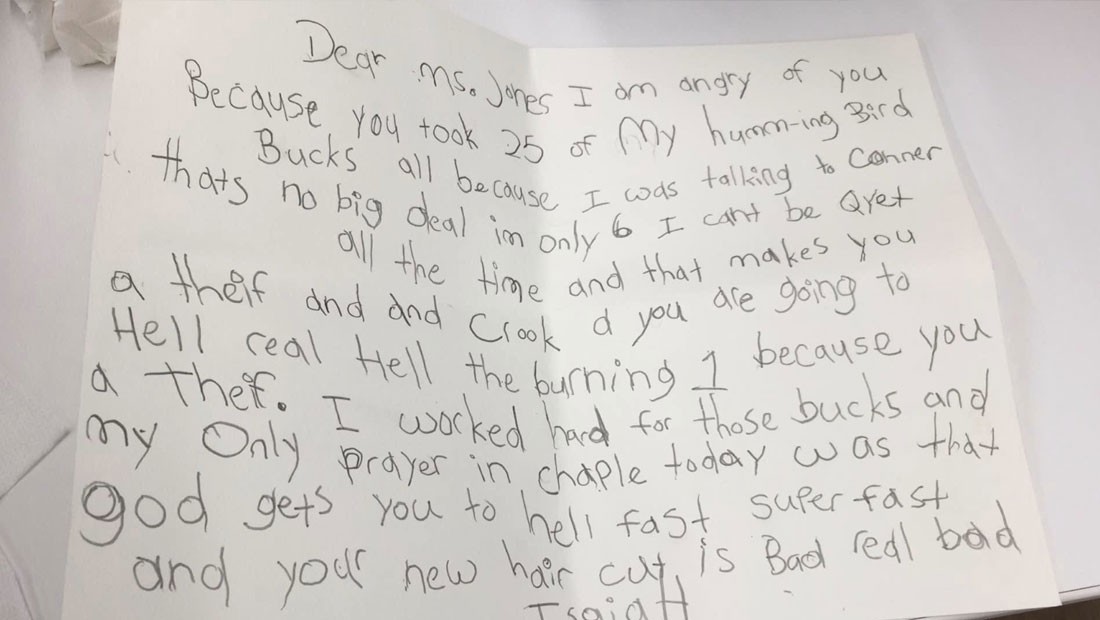 Dear Ms. Jones I am angry of you
Because you took 25 of My humm-ing Bird
Bucks all because I was talking to Conner
thats no big deal im only 6 I cant be Qyet
all the time and that makes you
a theif and and Crook d you are going to
Hell real Hell the burning 1 because you
a Theif. I worked hard for those bucks and
my Only prayer in chaple today was that
god gets you to hell fast super fast
and your new hair cut is Bad real bad
Isaiah